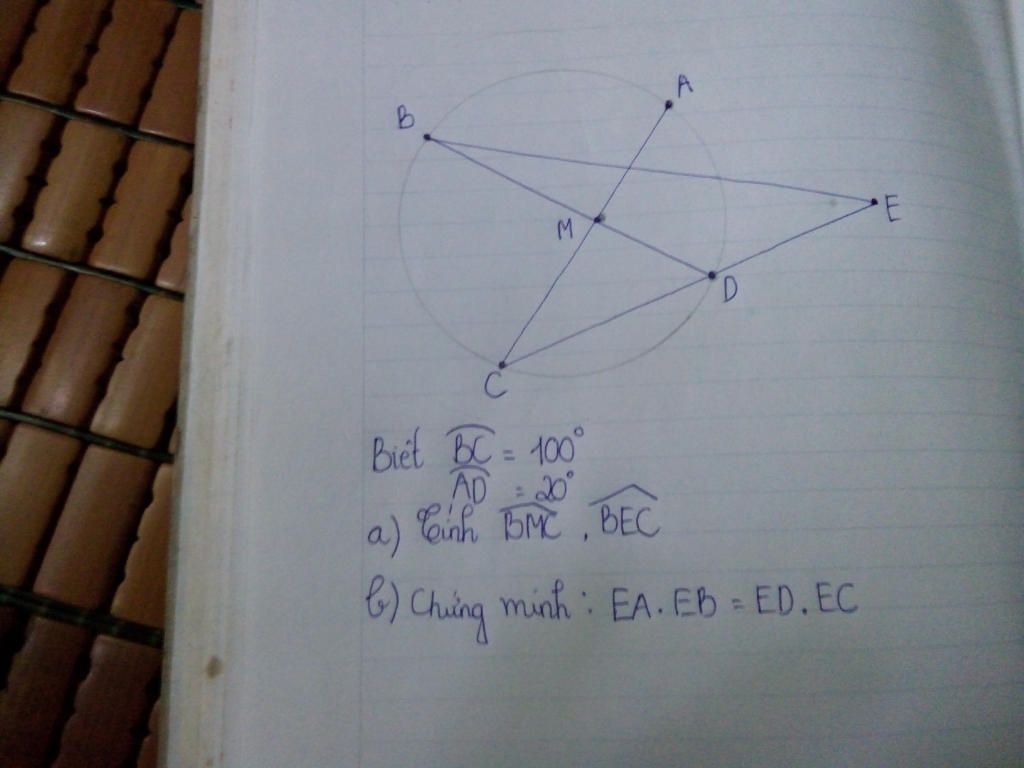 A
B
E
M
D
C
Biết BC = 100°
AD = 20°
a) Tính BMC , BEC
b) Chứng minh : EA . EB = ED . EC